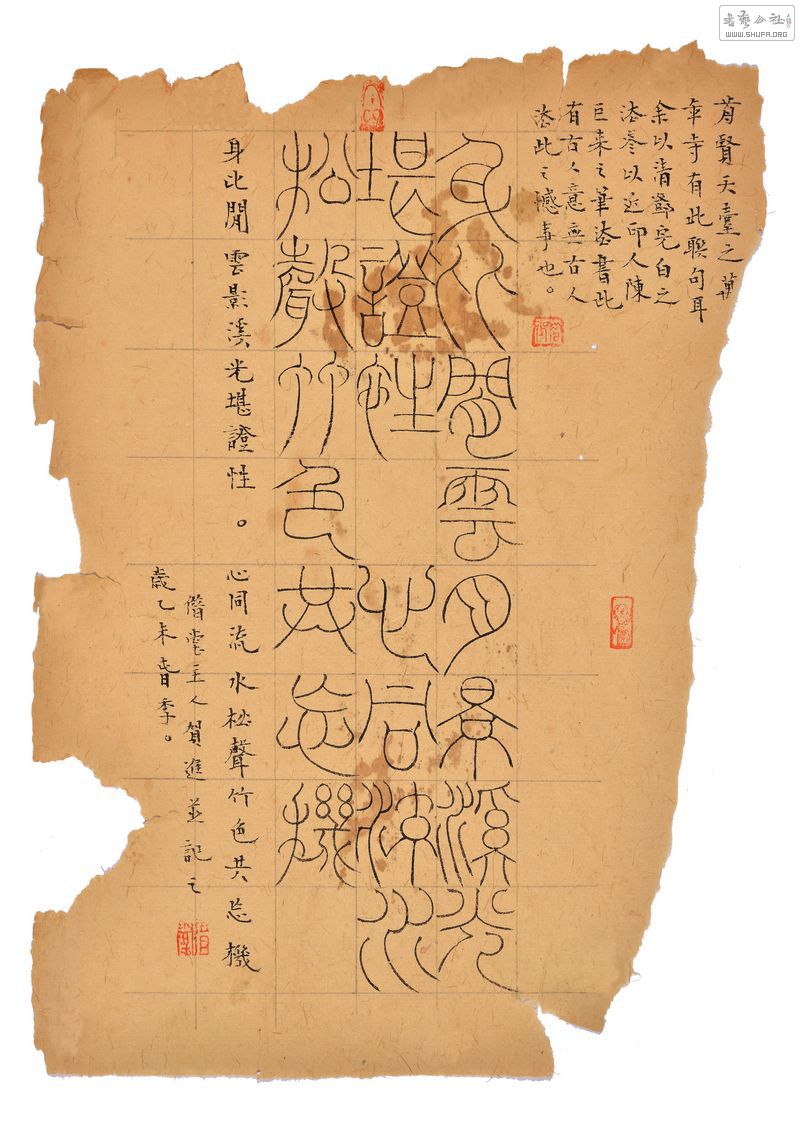 書藝公社
WWW.SHUFA.ORG
賢天臺之萬
年寺有此聯句耳
余以清鄧完白之
法參以近印人陳
巨来之筆法書此
有古人意無古人
法此之憾事也。
身比閒雲月景溪光
堪證性心同流水
松聲竹色共忘機
身比閒雲影溪光堪證性。心同流水松聲竹色共忘機
堂主人賀進並記之
歲乙未春季。